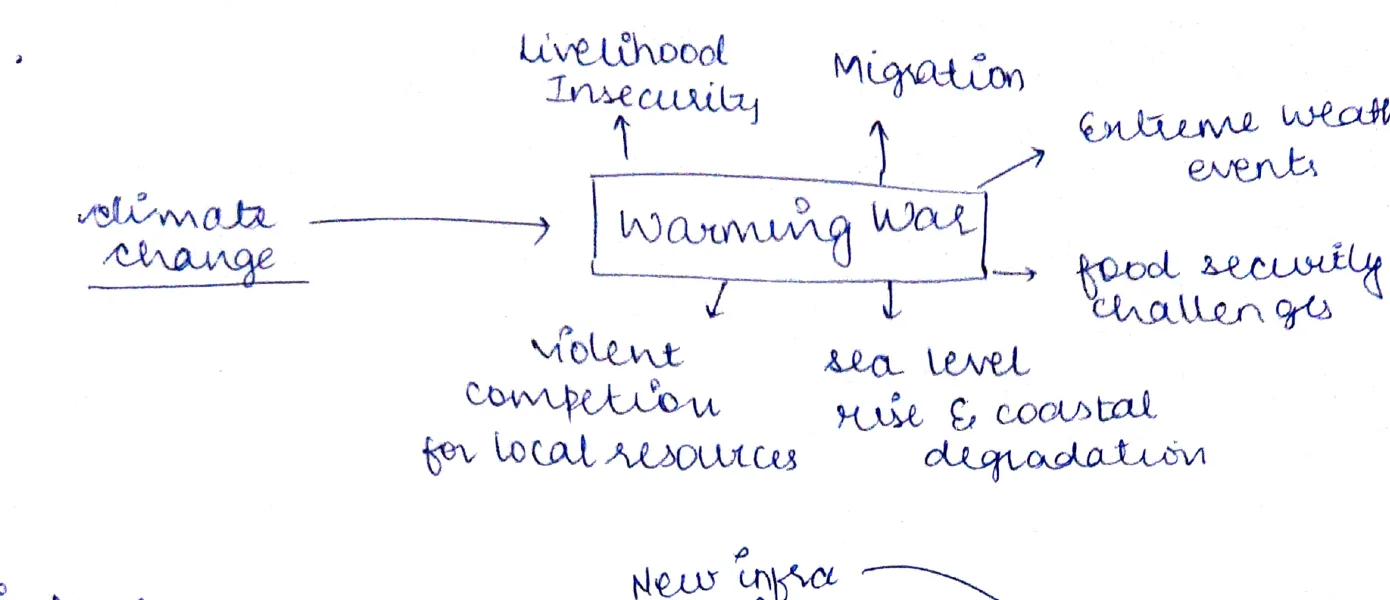 Livelihood
Insecurity
Migration
Extreme weath
events
climate
change
Warming War
food security
challenges
violent
competion
for local resources
sea level
rise & coastal
degradation
New infra